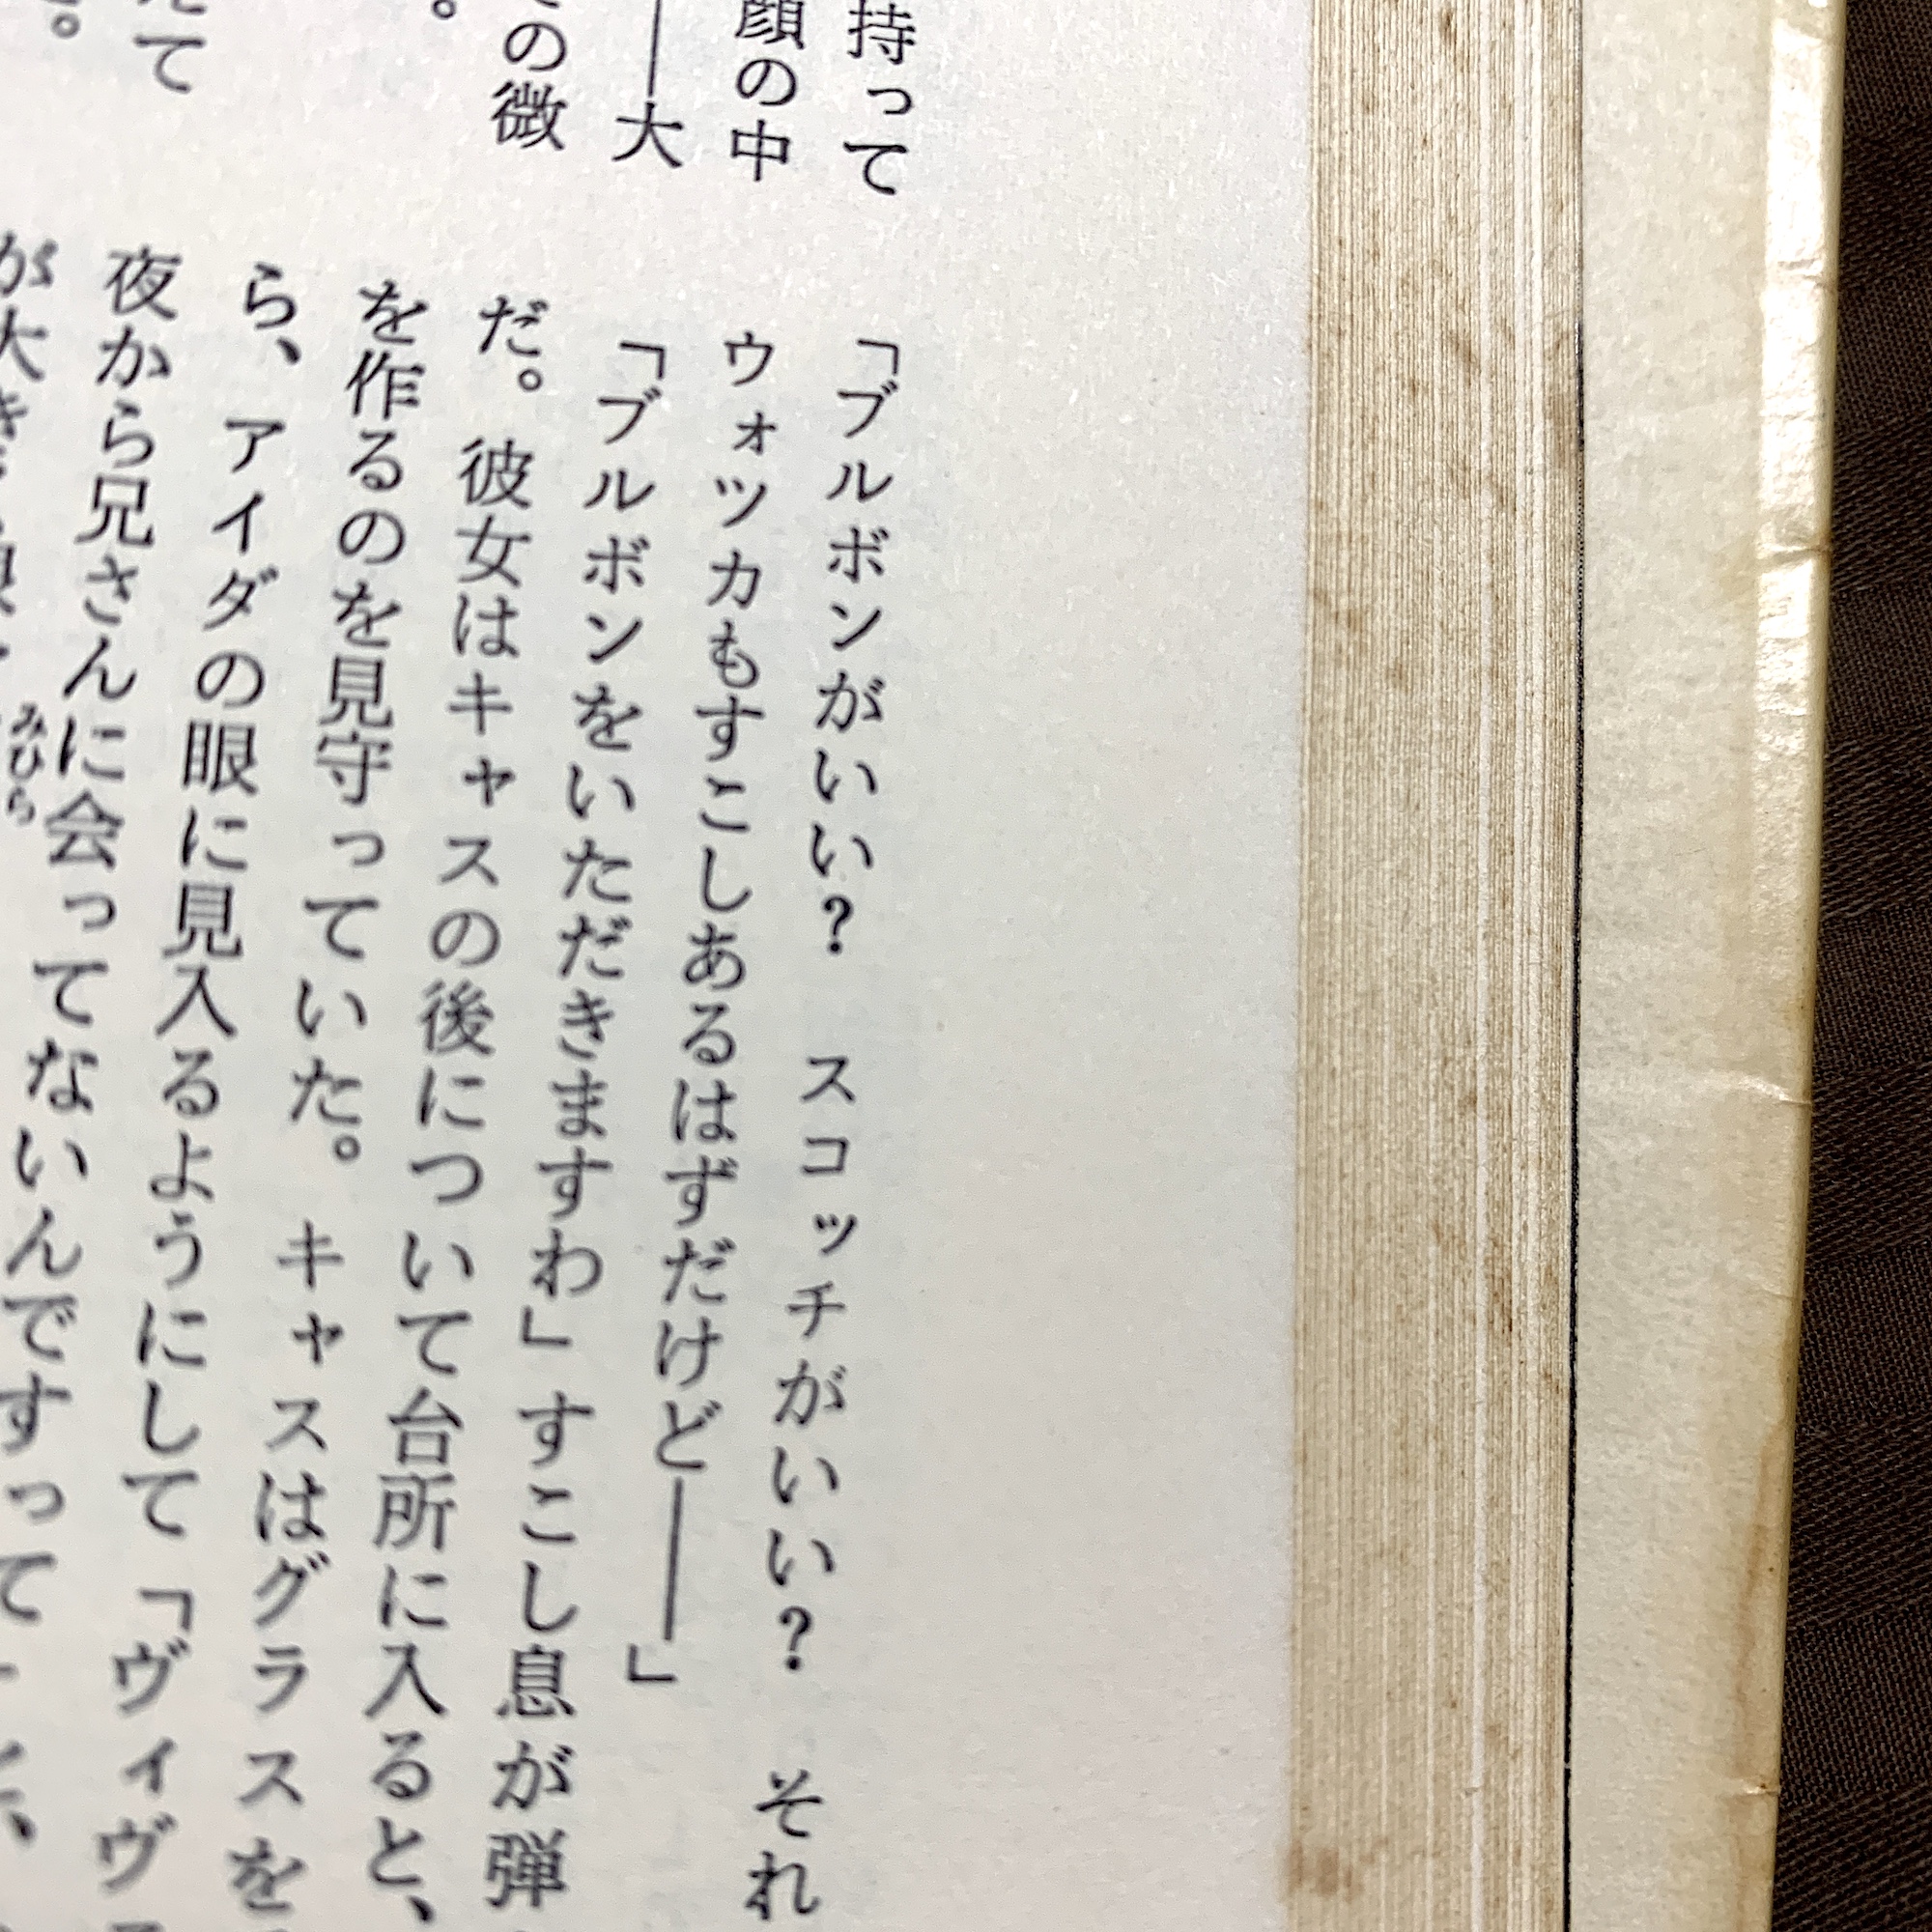 持って
顔の中
――大
の微
。
たて
。
「ブルボンがいい？　スコッチがいい？　それ
ウォツカもすこしあるはずだけど――」
「ブルボンをいただきますわ」すこし息が弾
だ。彼女はキャスの後について台所に入ると、
を作るのを見守っていた。キャスはグラスを
ら、アイダの眼に見入るようにして「ヴィヴ
夜から兄さんに会ってないんですって
みひら
が大き